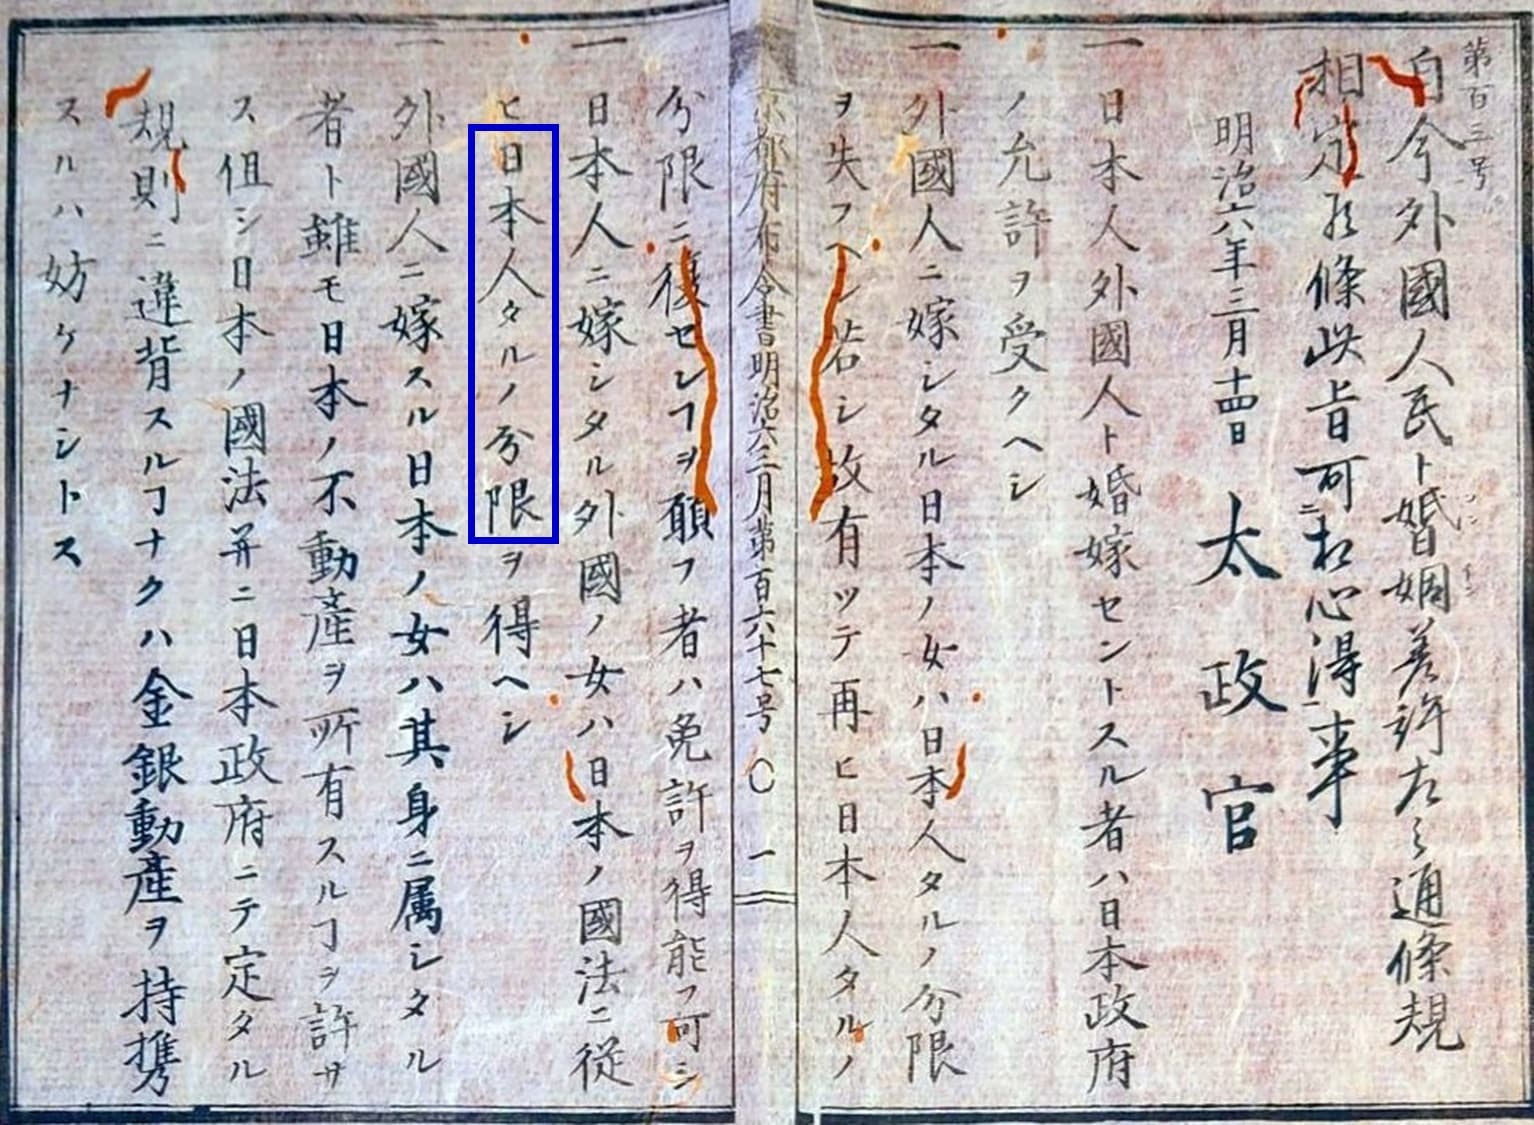 第百三号
自今外國人民ト婚姻差許左之通條規
相定候條此旨可相心得事
明治六年三月十四日
太政官
一日本人外國人ト婚嫁セントスル者ハ日本政府
ノ允許ヲ受クヘシ
一外國人ニ嫁シタル日本ノ女ハ日本人タルノ分限
ヲ失フヘシ若シ故有ツテ再ヒ日本人タルノ
京都府布令書明治六三月第百六十七号〇一
分限ニ復センヿヲ願フ者ハ免許ヲ得能フ可シ
一日本人ニ嫁シタル外國ノ女ハ日本ノ國法ニ従
ヒ日本人タルノ分限ヲ得ヘシ
一外國人ニ嫁スル日本ノ女ハ其身ニ属シタル
者ト雖モ日本ノ不動產ヲ所有スルヿヲ許サ
ス但シ日本ノ國法并ニ日本政府ニテ定タル
規則ニ違背スルヿナクハ金銀動產ヲ持携
スルハ妨ケナシトス